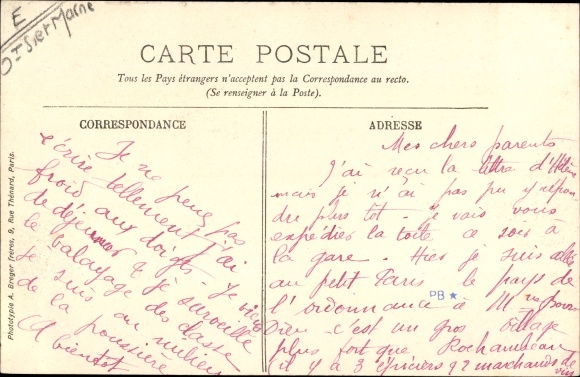 E
St Sr Marne
CARTE POSTALE
Tous les Pays étrangers n'acceptent pas la Correspondance au recto.
(Se renseigner à la Poste).
CORRESPONDANCE
Je ne peux pas
écrire tellement j'ai
froid aux doigts. Je viens
de déjeuner & je surveille
le balayage des classes
Je suis au milieu
de la poussière
A bientôt
ADRESSE
Mes chers parents
J'ai reçu la lettre d'Hélène
mais je n'ai pas pu y répon
dre plus tôt. Je vais vous
expédier la toile ce soir à
la gare. Hier je suis allée
au petit Paris le pays de
l'ordonnance à Mr
Dieu c'est un gros village
plus fort que Rochambeau
(il y a 3 épiciers & 2 marchands de
vin
PB
Phototypie A. Breger Frères, 9, Rue Thénard, Paris.